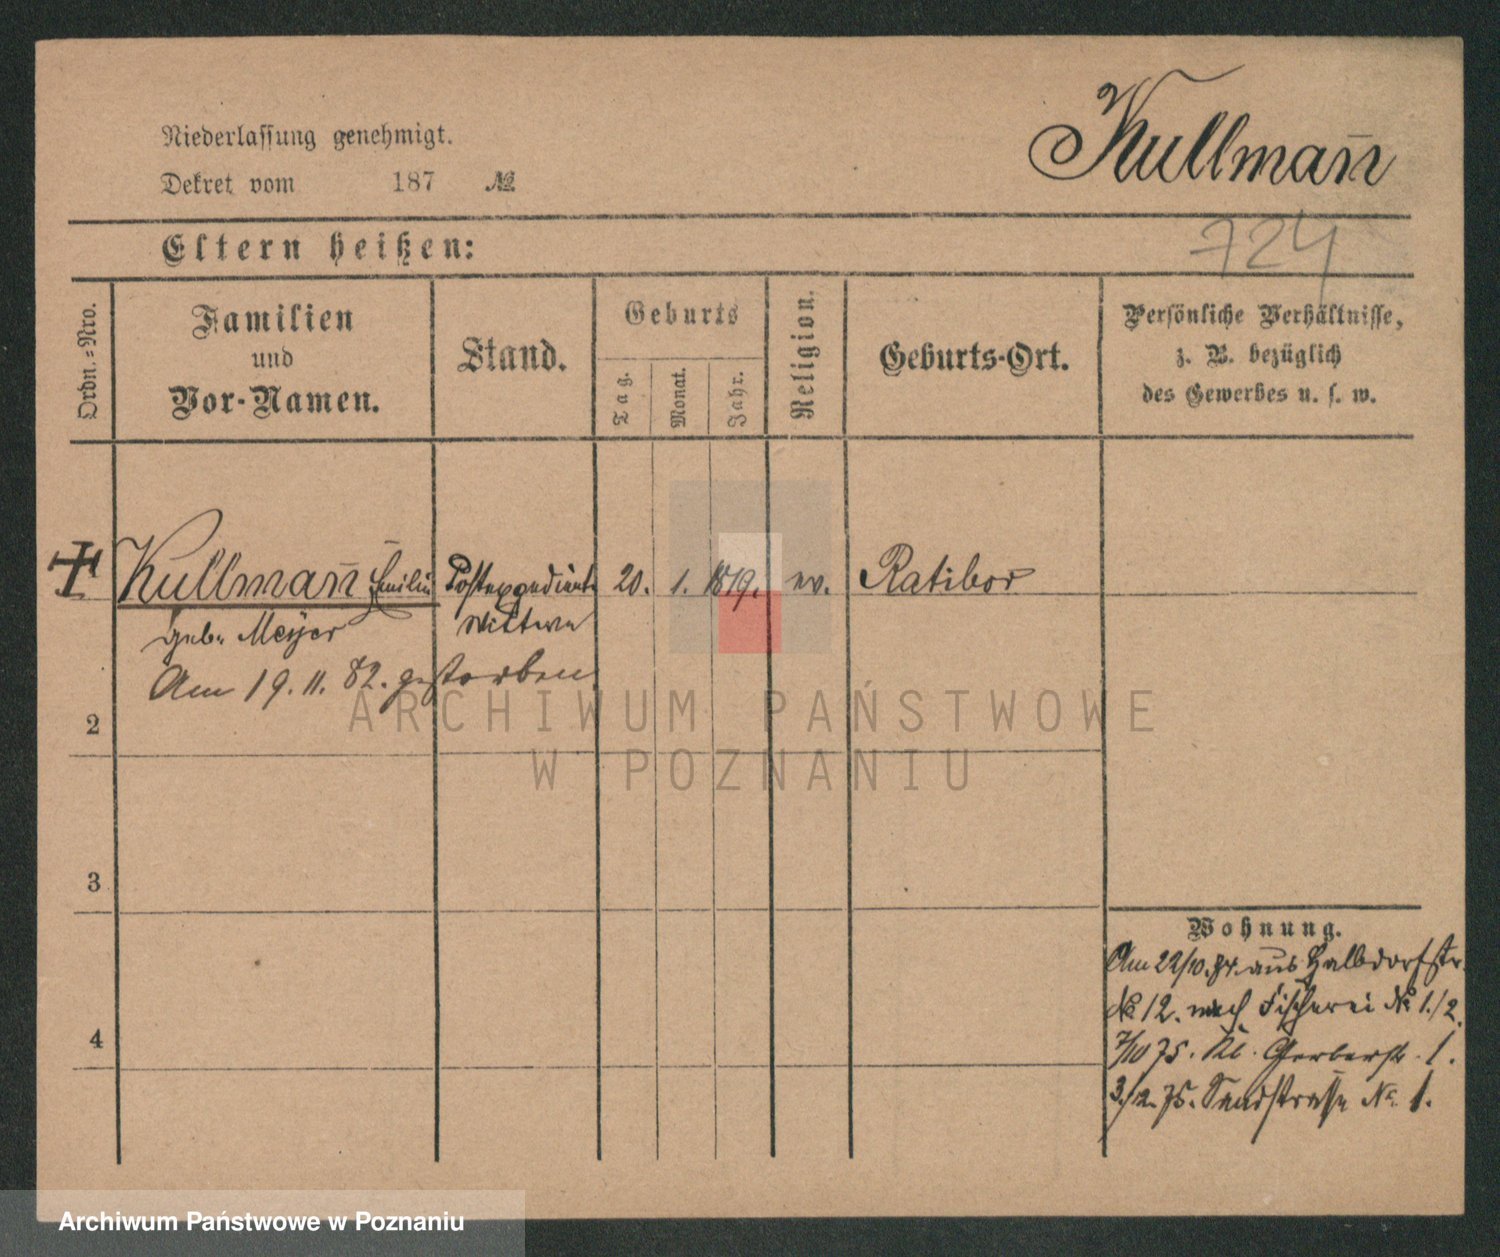 Kullmañ
Niederlassung genehmigt.
Dekret vom 187 №
724
Eltern heißen:
Ordn.=Nro.
Familien
und
Vor-Namen.
Stand.
Geburts
Tag.
Monat.
Jahr.
Religion.
Geburts-Ort.
Persönliche Verhältnisse,
z. B. bezüglich
des Gewerbes u. s. w.
Kullmañ Emilie Postexpedient 20. 1. 1819. ev. Ratibor
geb. Meyer Wittwe
Am 19. 11. 82. gestorben
2
3
4
Wohnung.
Am 22/10. 74. aus Halbdorfstr.
№ 12. nach Fischerei № 1./2.
7/10 75. Kl. Gerberstr. 1.
3./12. 75. Sandstrasse No. 1.
ARCHIWUM PAŃSTWOWE
W POZNANIU
Archiwum Państwowe w Poznaniu